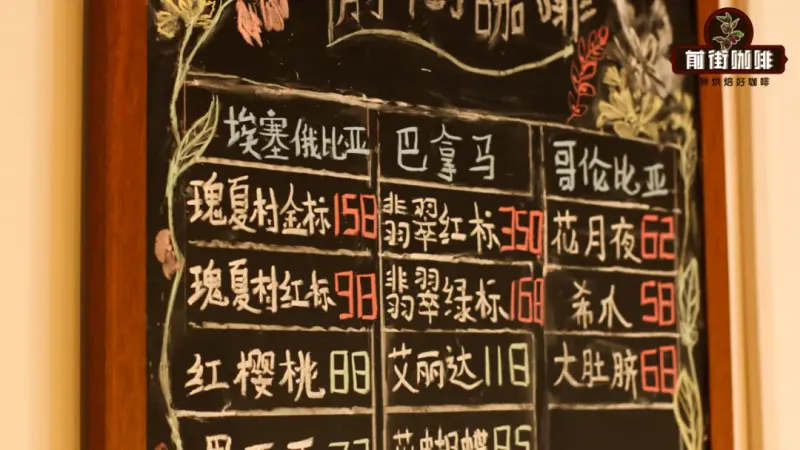 前街咖啡
前街咖啡
埃塞俄比亚 巴拿马 哥伦比亚
瑰夏村金标 158 翡翠红标 350 花月夜 62
瑰夏村红标 98 翡翠绿标 168 希爪 58
红樱桃 88 艾丽达 118 大肚脐 68
花蝴蝶 85